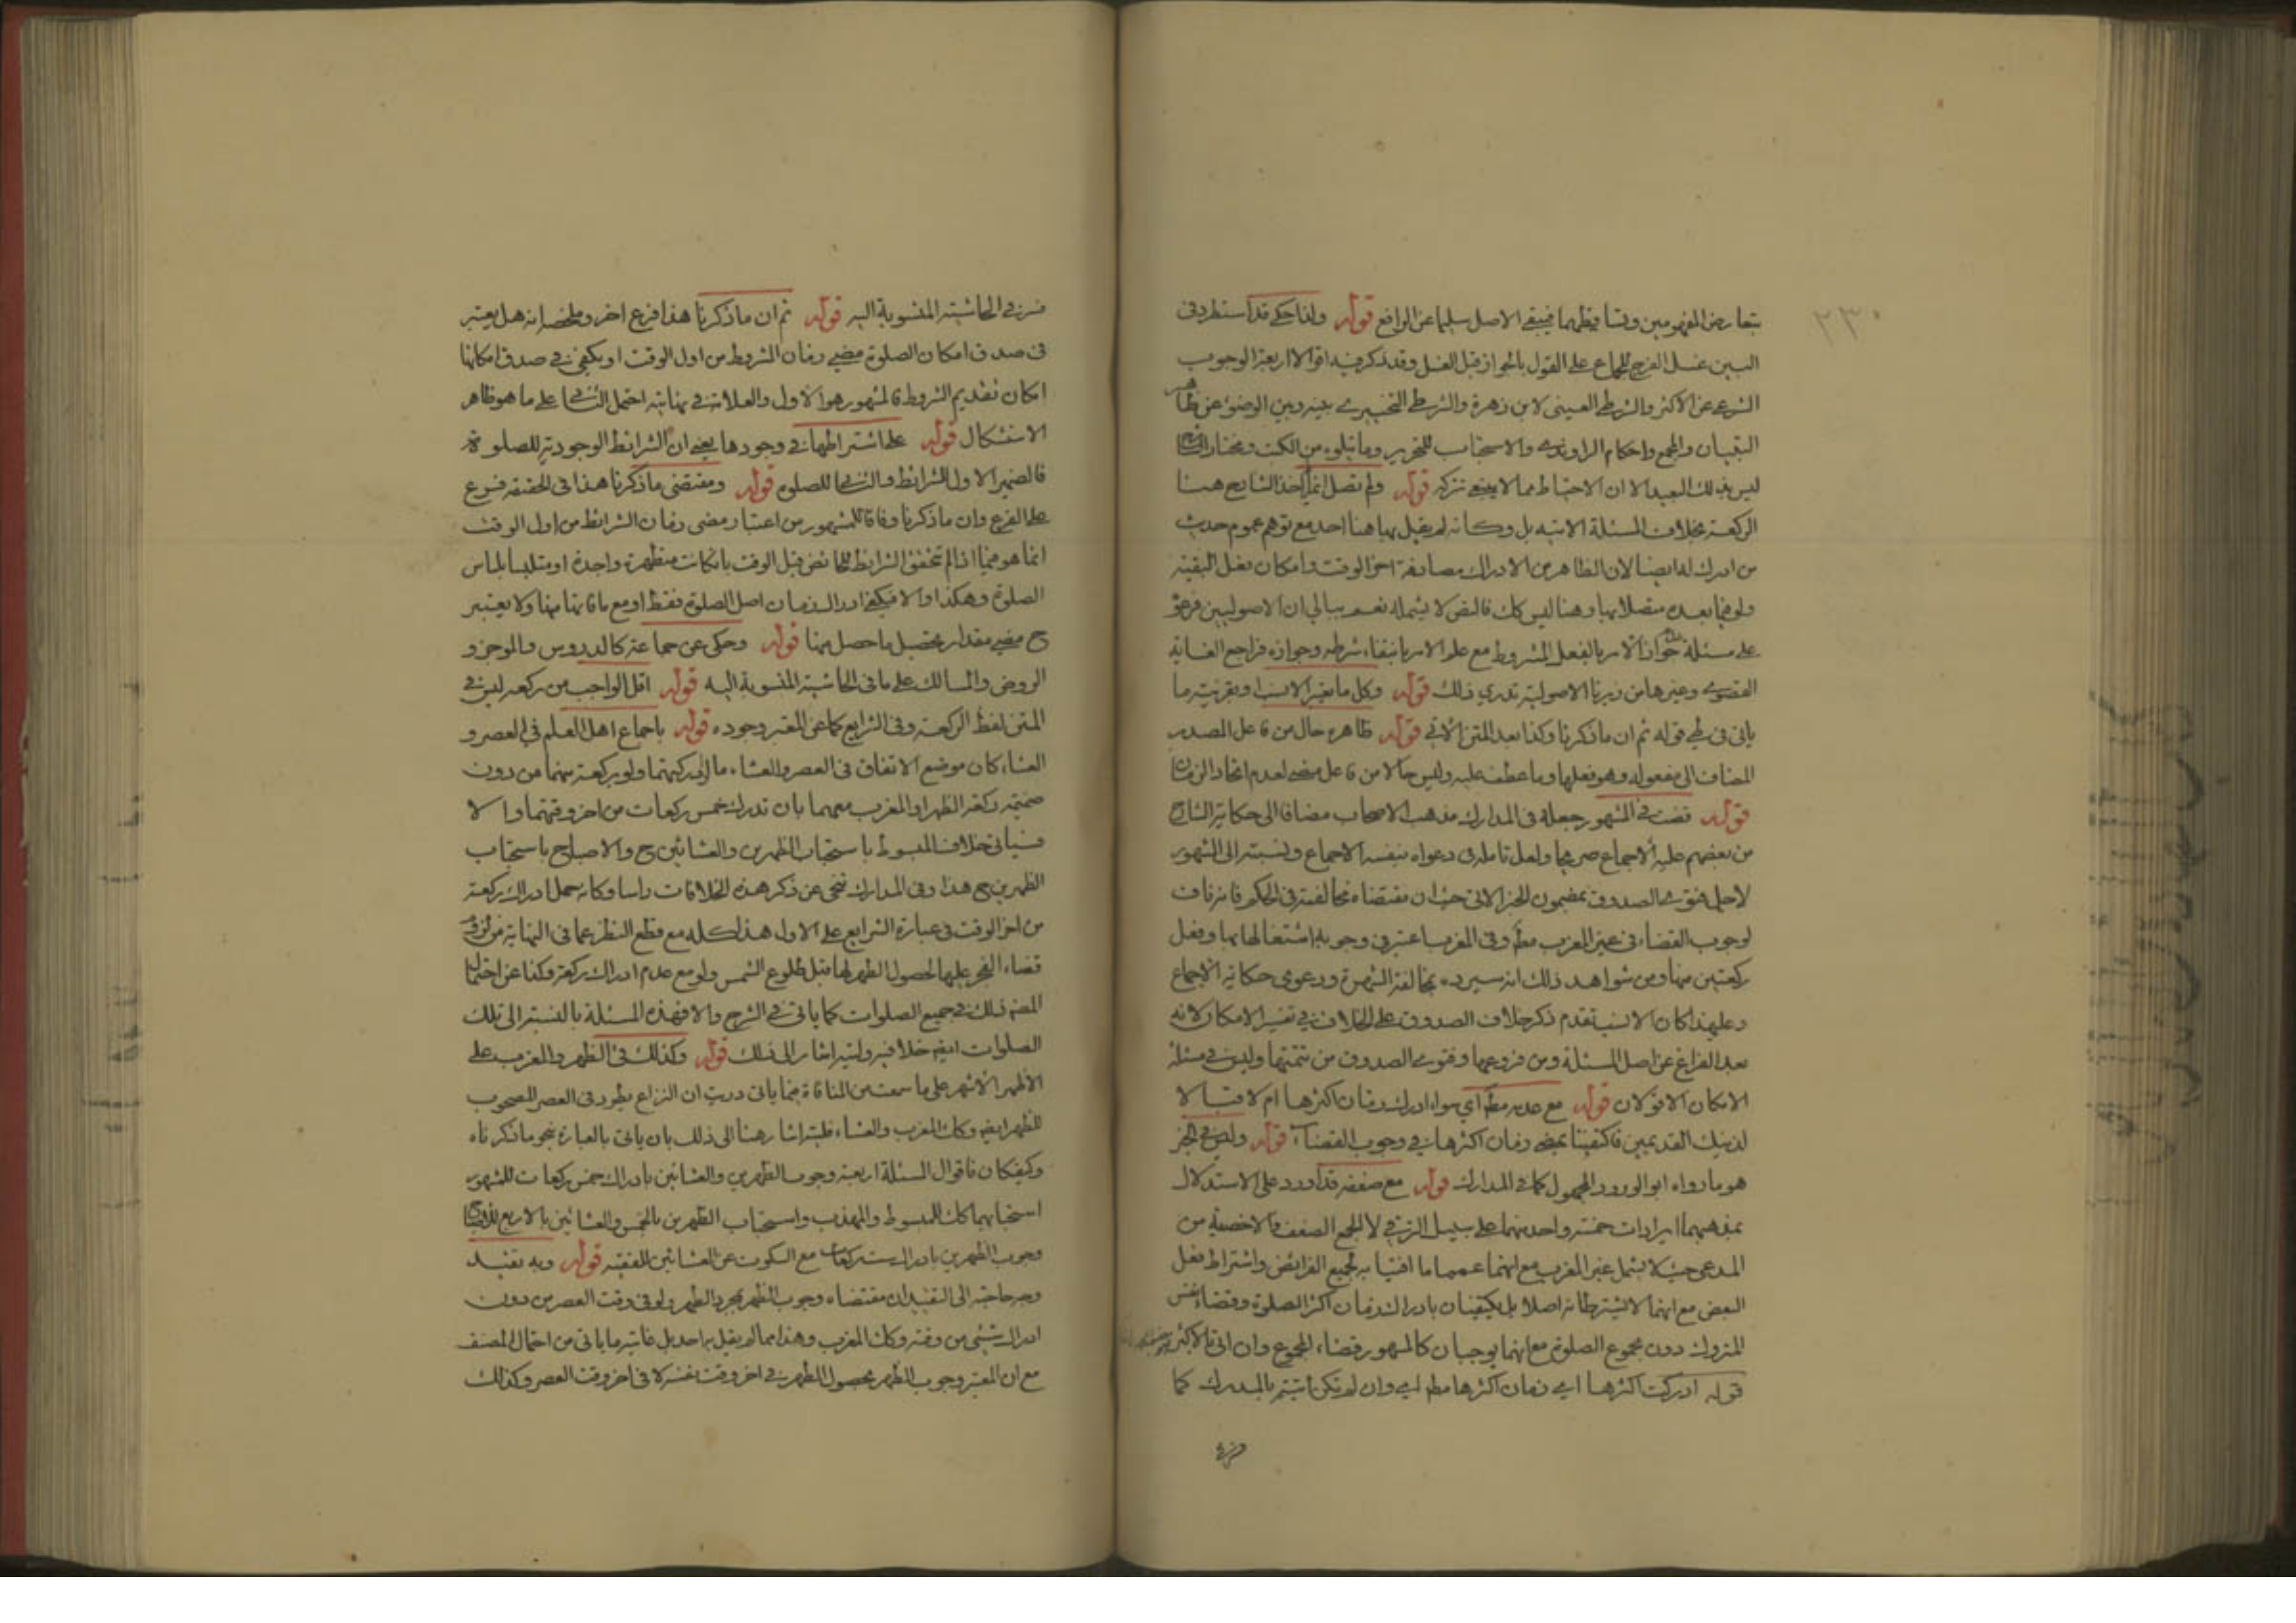 ٢٣٠
بتعارض المفهومين وتساقطهما فيبقى الاصل سليما عن الرافع قوله ولذا حكى قد استطرد في
البين غسل الفرج للجماع على القول بالجواز قبل الغسل وقد ذكر فيه اقوالا اربعة الوجوب
الشرعي عن الاكثر والشرطي العيني لابن زهرة والشرطي التخييري بينه وبين الوضوء عن ظاهر
التبيان والمجمع واحكام الراوندي والاستحباب للتحرير وما يتلوه من الكتب ومختار
ليس بذلك البعيد الا ان الاحتياط مما لا ينبغي تركه قوله ولم تصل انما اخذ الشارح هنا
الركعة بخلاف المسئلة الاتية بل وكانه لم يقل بها هنا احد مع توهم عموم حديث
من ادرك له ايضا لان الظاهر من الادراك مصادفة اخر الوقت وامكان فعل البقية
ولو فيما بعده متصلا بها وهنا ليس كك فالنص لا يشمله نعم ببالي ان الاصوليين فرعوا
على مسئلة جواز الامر بالفعل المشروط مع علم الامر بانتفاء شرطه وجوازه فراجع الغاية
القصوى وغيرها من زبرنا الاصولية تدري ذلك قوله وكل ما يغير الانسب او بقرينة ما
ياتي في طي قوله ثم ان ما ذكرنا وكذا بعد المتن الاتي قوله ظاهره حال من فاعل المصدر
المضاف الى مفعوله وهو فعلها وما عطف عليه وليس حالا من فاعل مضى لعدم اتحاد الزمان
قوله قضت في المشهور جعله في المدارك مذهب الاصحاب مضافا الى حكاية الشارح
من بعضهم عليه الاجماع صريحا ولعل تامله في دعواه بنفسه الاجماع ونسبته الى الشهور
لاجل فتوى الصدوق بمضمون الخبر الاتي حيث ان مقتضاه مخالفته في الحكم فانه ناف
لوجوب القضاء في غير المغرب مطم وفي المغرب اعتبر في وجوبه اشتغالها بها وفعل
ركعتين منها ومن شواهد ذلك انه سيرده بمخالفة الشهرة ودعوى حكاية الاجماع
وعليهذا كان الانسب تقدم ذكر خلاف الصدوق على الخلاف في تفسير الامكان لانه
بعد الفراغ عن اصل المسئلة ومن فروعها وفتوى الصدوق من تتمتها وليس في مسئلة
الامكان الا قولان قوله مع عدمه مطم اي سواء ادرك زمان اكثرها ام لا قبالا
لذينك القديمين فاكتفيتا بمضى زمان اكثرها في وجوب القضاء قوله وليس في الخبر
هو ما رواه ابو الورود المجهول كما في المدارك قوله مع ضعفه قد اورد على الاستدلال
بمفهومها ايرادات خمسة واحد منها على سبيل الترقي لا الجمع الضعف والاخصية من
المدعى حيث لا يشمل غير المغرب مع انهما عمما ما افتيا به لجميع الفرائض واشتراط فعل
البعض مع انهما لا يشترطانه اصلا بل يكتفيان بادراك زمان اكثر الصلوة وقضاء نفس
المتروك دون مجموع الصلوة مع انهما يوجبان كالمشهور قضاء المجموع وان اتى بالاكثر
قوله ادركت اكثرها اي زمان اكثرها مطم اي وان لم تكن اتيتم بالمدرك كما
فسر في الحاشية المنسوبة اليه قوله ثم ان ما ذكرنا هذا فرع اخر وملخصه انه هل يعتبر
في صدق امكان الصلوة مضى زمان الشروط من اول الوقت او يكفى في صدق امكانها
امكان تقديم الشروط فالمشهور هو الاول والعلامة في نهايته احتمل الثاني على ما هو ظاهر
الاستشكال قوله على اشتراطها في وجودها يعني ان الشرائط الوجودية للصلوة
فالضمير الاول للشرائط والثاني للصلوة قوله ومقتضى ما ذكرنا هذا في الحقيقة فرع
على الفرع وان ما ذكرنا وفاقا للمشهور من اعتبار مضى زمان الشرائط من اول الوقت
انما هو فيما اذا لم تتحقق الشرائط للحائض قبل الوقت بانكانت متطهرة واجدة او متلبسا بلباس
الصلوة وهكذا والا فيكفي ادراك زمان اصل الصلوة فقط او مع ما فاتها منها ولا يعتبر
ح مضى مقدار يحصل ما حصل منها قوله وحكى عن جماعة كالدروس والموجز و
الروض والمسالك على ما في الحاشية المنسوبة اليه قوله اقل الواجب من ركعة ليس في
المتن لفظ الركعة وفي الشرايع كما عن المعتبر وجوده قوله باجماع اهل العلم في العصر و
العشاء كان موضع الاتفاق في العصر والعشاء ما ادركتهما ولو بركعة منهما من دون
ضميمة ركعة الظهر او المغرب معهما بان تدرك خمس ركعات من اخر وقتهما والا
فسياتي خلاف المبسوط باستحباب الظهرين والعشائين ح والاصباح باستحباب
الظهرين ح هذا وفي المدارك نحى عن ذكر هذه الخلافات راسا وكانه حمل ادراك ركعة
من اخر الوقت في عبارة الشرايع على الاول هذا كله مع قطع النظر عما في النهاية من لزوم
قضاء الفجر عليها لحصول الطهر لها قبل طلوع الشمس ولو مع عدم ادراك ركعة وكذا عن احتمال
المضـ ذلك في جميع الصلوات كما ياتي في الشرح والا فهذه المسئلة بالنسبة الى تلك
الصلوات ايضا خلافية وليته اشار الى ذلك قوله وكذلك في الظهر والمغرب على
الاظهر الاشهر على ما سمعت من المنافاة فيما ياتي دريت ان النزاع يطرد في العصر المصحوب
للظهر ايضا وكك المغرب والعشاء فليته اشار هنا الى ذلك بان ياتي بالعبارة نحو ما ذكرناه
وكيفكان فاقوال المسئلة اربعة وجوب الظهرين والعشائين بادراك خمس ركعات للمشهور
استحبابهما كك للمبسوط والمهذب واستحباب الظهرين بالخمس والعشائين بالاربع
وجوب الظهرين بادراك ست ركعات مع السكوت عن العشائين للفقيه قوله وبه تقيد
وجه حاجته الى التقييد ان مقتضاه وجوب الظهر بمجرد الطهر ولو في وقت العصر من دون
ادراك شيئ من وقته وكك المغرب وهذا مما لم يقل به احد بل غايته ما ياتي من احتمال المصنف
مع ان المعتبر وجوب الظهر بحصول الطهر في اخر وقت نفسه لا في اخر وقت العصر وكذلك